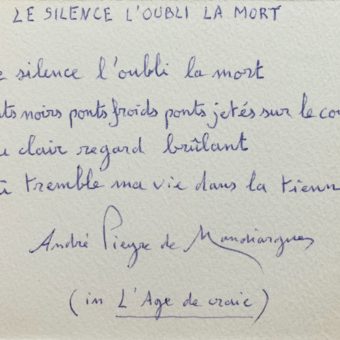 LE SILENCE L'OUBLI LA MORT
e silence l'oubli la mort
ts noirs ponts froids ponts jetés sur le cou
u clair regard brûlant
ù tremble ma vie dans la tienn
André Pieyre de Mandiargues
(in L'Age de craie)